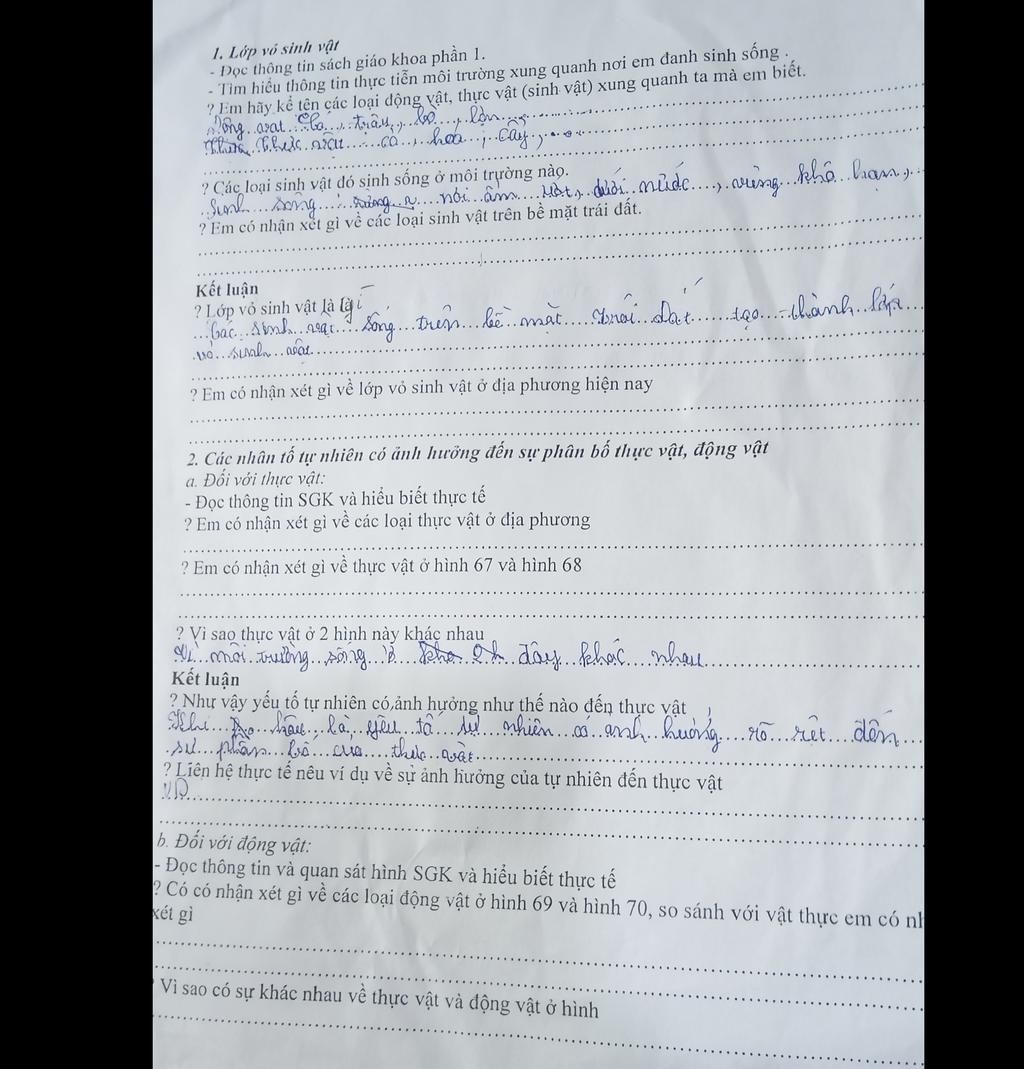 1. Lớp vỏ sinh vật
- Đọc thông tin sách giáo khoa phần 1.
- Tìm hiểu thông tin thực tiễn môi trường xung quanh nơi em đanh sinh sống .
? Em hãy kể tên các loại động vật, thực vật (sinh vật) xung quanh ta mà em biết.
Động vật cá, trâu, bò, lợn
thực vật cỏ, hoa, cây,
? Các loại sinh vật đó sinh sống ở môi trường nào.
Sinh sống nơi ẩm ướt, dưới nước, vùng khô hạn,
? Em có nhận xét gì về các loại sinh vật trên bề mặt trái đất.
Kết luận
? Lớp vỏ sinh vật là gì
Các sinh vật sống trên bề mặt trái đất tạo thành lớp
vỏ sinh vật
? Em có nhận xét gì về lớp vỏ sinh vật ở địa phương hiện nay
2. Các nhân tố tự nhiên có ảnh hưởng đến sự phân bố thực vật, động vật
a. Đối với thực vật:
- Đọc thông tin SGK và hiểu biết thực tế
? Em có nhận xét gì về các loại thực vật ở địa phương
? Em có nhận xét gì về thực vật ở hình 67 và hình 68
? Vì sao thực vật ở 2 hình này khác nhau
Vì môi trường sống ở đây khác nhau
Kết luận
? Như vậy yếu tố tự nhiên có ảnh hưởng như thế nào đến thực vật
Khí hậu là yếu tố tự nhiên có ảnh hưởng rõ rệt đến
sự phân bố của thực vật
? Liên hệ thực tế nêu ví dụ về sự ảnh hưởng của tự nhiên đến thực vật
VD
b. Đối với động vật:
- Đọc thông tin và quan sát hình SGK và hiểu biết thực tế
? Có có nhận xét gì về các loại động vật ở hình 69 và hình 70, so sánh với vật thực em có nh
xét gì
Vì sao có sự khác nhau về thực vật và động vật ở hình